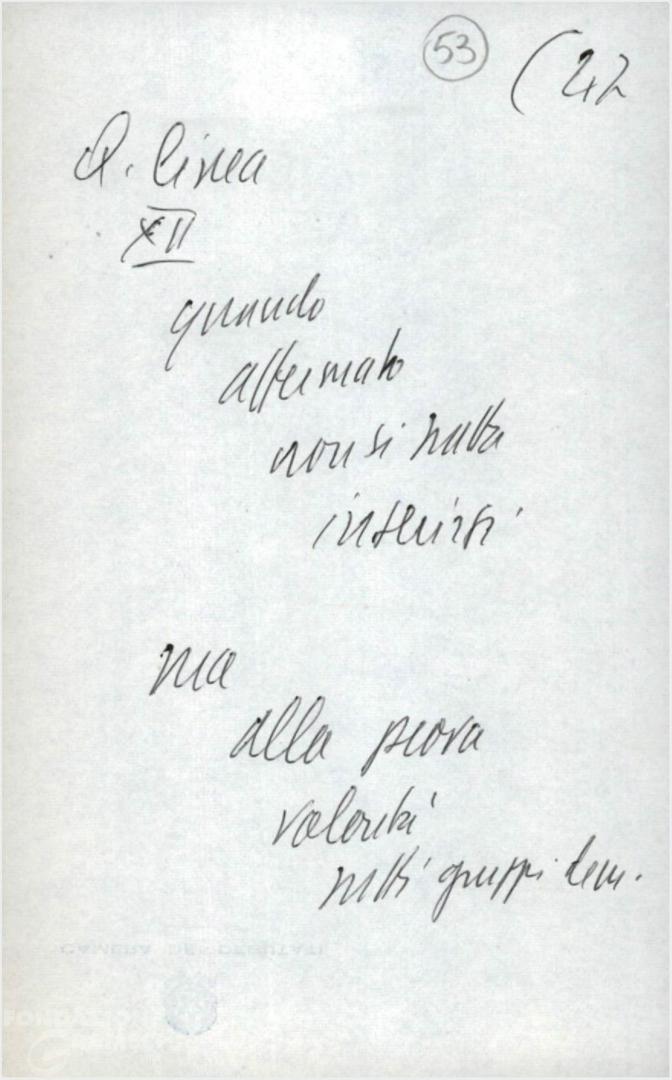 53
(42
Q. linea
XII
quando
affermato
non si tratta
inserirsi
ma
alla prova
volontà
tutti gruppi dem.
CAMERA DEI DEPUTATI
FONDAZIO